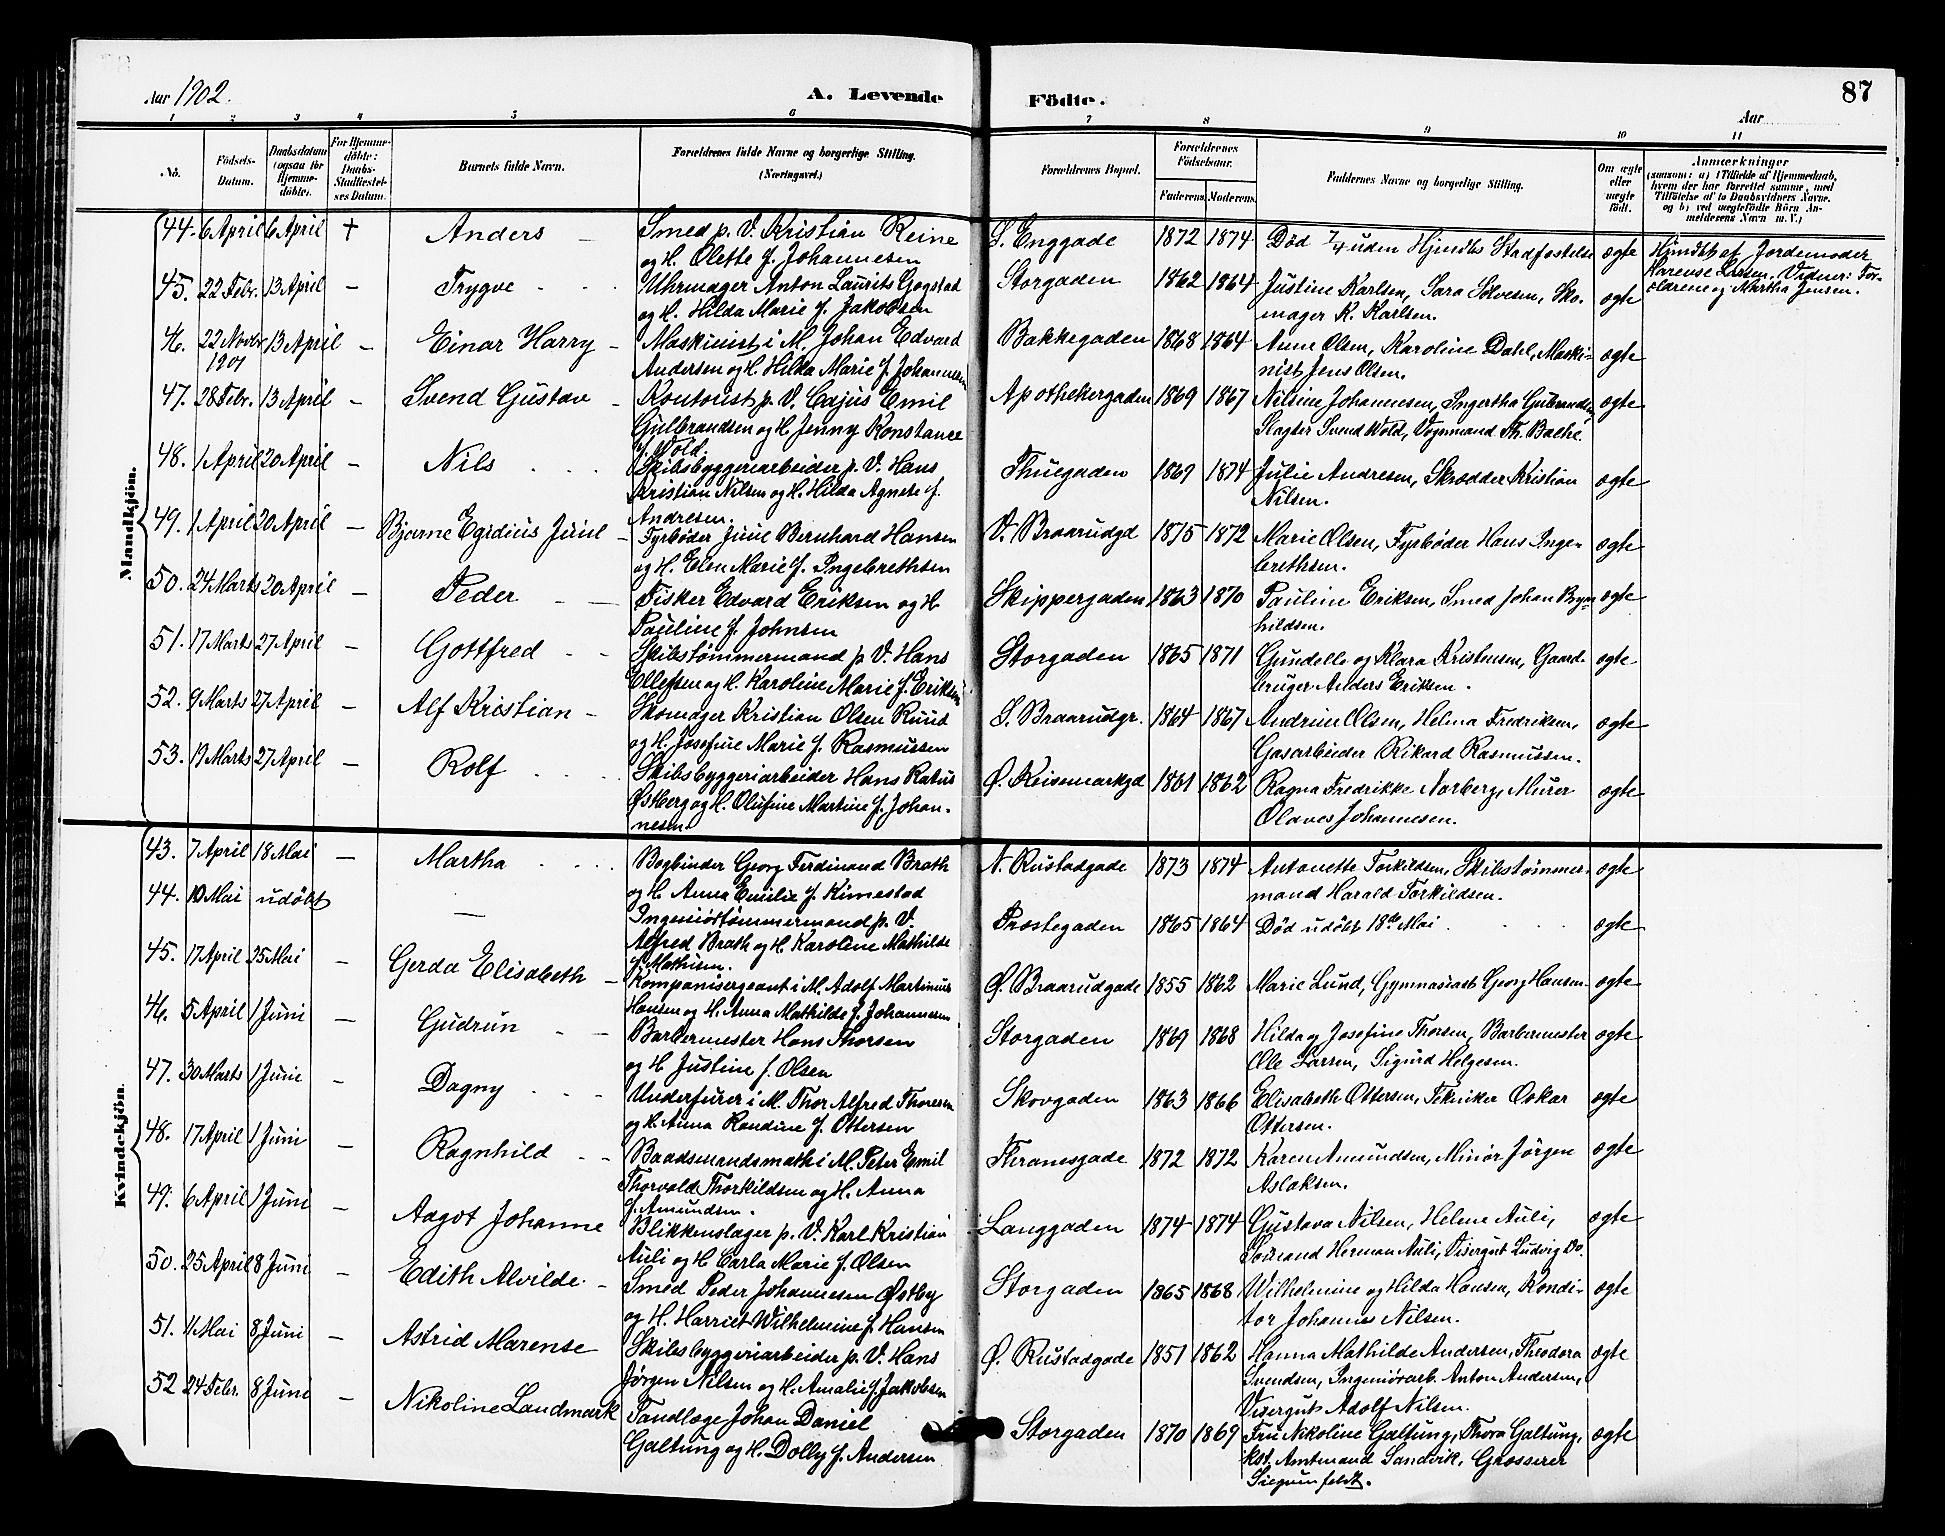 Aar 1902.
A. Levende
Födte.
87
Aar
1 2 3 4 5 6 7 8 9 10 11
No.
Födsels-
Datum.
Daabsdatum
(ogsaa for
Hjemme-
döbte).
For Hjemme-
döbte:
Daabs-
Stadfæstel-
ses Datum.
Barnets fulde Navn.
Forældrenes fulde Navne og borgerlige Stilling.
(Næringsvei.)
Forældrenes Bopæl.
Forældrenes
Födselsaar.
Faderens. Moderens.
Faddernes Navne og borgerlige Stilling.
Om ægte
eller
uægte
født.
Anmærkninger
(saasom: a) i Tilfælde af Hjemmedaab,
hvem der har forrettet samme, med
Tilföielse af to Daabsvidners Navne,
og b) ved uægtefödte Börn An-
melderens Navn m. V.)
Mandkjön.
44. 6 April 6 April + Anders – Smed p. V. Kristian Reine
og H. Olette f. Johannesen
S. Enggade 1872 1874 Død 7/4 uden Hjmdbs Stadfæstelse ægte Hjmdbt af Jordemoder
Larsen. Vidner: For-
ældrene og Martha Jensen.
45. 22 Febr. 13 April – Trygve Uhrmager Anton Laurits Gogstad
og H. Hilda Marie f. Jakobsen
Storgaden 1862 1864 Justine Karlsen, Sara Sølvesen, Sko-
mager K. Karlsen. ægte
46. 22 Novbr. 13 April – Einar Harry – Maskinist i M. Johan Edvard
1901
Andersen og H. Hilda Marie f. Johannesen
Bakkegaden 1868 1864 Anne Olsen, Karoline Dahl, Maski-
nist Jens Olsen. ægte
47. 28 Febr. 13 April – Svend Gustav – Kontorist p. V. Cajus Emil
Gulbrandsen og H. Jenny Konstance
f. Wold.
Apothekergaden 1869 1867 Nilsine Johannesen, Ingertha Gulbrandsen
Slagter Svend Wold, Vognmand Th. Bache. ægte
48. 1 April 20 April – Nils Skibsbyggeriarbeider p. V. Hans
Kristian Nilsen og H. Hilda Agnese f.
Andresen.
Thuegaden 1869 1874 Julie Andresen, Skrædder Kristian
Nilsen. ægte
49. 1 April 20 April – Bjarne Egidius Juul – Fyrbøder Juul Bernhard Hansen
og H. Elen Marie f. Ingebrethsen
V. Braarudgd 1875 1872 Marie Olsen, Fyrbøder Hans Inge-
brethsen. ægte
50. 24 Marts 20 April – Peder Fisker Edvard Eriksen og H.
Pauline f. Johnsen
Skippergaden 1863 1870 Pauline Eriksen, Smed Johan Bryn-
hildsen. ægte
51. 17 Marts 27 April – Gottfred Skibstømmermand p V. Hans
Ellefsen og H. Karoline Marie f. Eriksen
Storgaden 1865 1871 Gundelle og Klara Kristensen, Gaard-
bruger Anders Eriksen. ægte
52. 9 Marts 27 April – Alf Kristian – Skomager Kristian Olsen Ruud
og H. Josefine Marie f. Rasmussen
S. Braarudgr. 1864 1867 Andrine Olsen, Helma Fredriksen,
Gasarbeider Rikard Rasmussen. ægte
53. 19 Marts 27 April – Rolf Skibsbyggeriarbeider Hans Ratus
Østberg og H. Olufine Martine f. Johan-
nesen.
Ø. Keisemarkgd 1861 1862 Ragna Fredrikke Aarberg, Murer
Olaves Johannesen. ægte
Kvindekjön.
43. 7 April 18 Mai – Martha Bogbinder Georg Ferdinand Brath
og H. Anna Emilie f. Kimestad
N. Rustadgade 1873 1874 Antonette Torkildsen, Skibstømmer-
mand Harald Torkildsen. ægte
44. 10 Mai udøbt – Ingeniørtømmermand p. V.
Alfred Brath og H. Karoline Mathilde
f. Mathisen.
Præstegaden 1865 1864 Død udøbt 18de Mai. ægte
45. 17 April 25 Mai – Gerda Elisabeth – Kompanisergeant i M. Adolf Martinius
Hansen og H. Anna Mathilde f. Johannesen
Ø. Braarudgade 1855 1862 Marie Lund, Gymnasiast Georg Hansen. ægte
46. 5 April 1 Juni – Gudrun Barbermester Hans Thorsen
og H. Justine f. Olsen
Storgaden 1869 1868 Hilda og Josefine Thorsen, Barbermester
Ole Larsen, Sigurd Helgesen. ægte
47. 30 Marts 1 Juni – Dagny Underfurer i M. Thor Alfred Thoresen
og H. Anna Randine f. Ottersen
Skovgaden 1863 1866 Elisabeth Ottersen, Tekniker Oskar
Ottersen. ægte
48. 17 April 1 Juni – Ragnhild Baadsmandsmath i M. Peter Emil
Thorvald Thorkildsen og H. Anna
f. Amundsen.
Thranesgade 1872 1872 Karen Amundsen, Minør Jørgen
Aslaksen. ægte
49. 6 April 1 Juni – Aagot Johanne Blikkenslager p. V. Karl Kristian
Auli og H. Carla Marie f. Olsen
Langgaden 1874 1874 Gustava Nilsen, Helene Auli,
Sømand Herman Auli, Visergut Ludvig Do. ægte
50. 25 April 8 Juni – Edith Alvilde – Smed Peder Johannesen Østby
og H. Harriet Wilhelmine f. Hansen
Storgaden 1865 1868 Wilhelmine og Hilda Hansen, Kondi-
tor Johannes Nilsen. ægte
51. 11 Mai 8 Juni – Astrid Marense Skibsbyggeriarbeider p. V. Hans
Jørgen Nilsen og H. Amalie f. Jakobsen
Ø. Rustadgade 1851 1862 Hanna Mathilde Andersen, Theodora
Svendsen, Ingeniørarb. Anton Andersen,
Visergut Adolf Nilsen. ægte
52 24 Febr. 8 Juni – Nikoline Landmark Tandlæge Johan Daniel
Galtung og H. Dolly f. Andersen
Storgaden 1870 1869 Fru Nikoline Galtung, Thora Galtung,
kst. Amtmand Sandvik, Grosserer
Siegrunfeldt. ægte